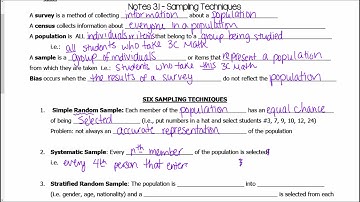 Notes 31 - Sampling Techniques
A survey is a method of collecting information about a population
A census collects information about everyone in a population
A population is ALL individuals or items that belong to a group being studied
i.e.: all students who take 3C Math
A sample is a group of individuals or items that represent a population
from which they are taken i.e.: students who take this 3C math
Bias occurs when the results of a survey do not reflect the population
SIX SAMPLING TECHNIQUES
1. Simple Random Sample: Each member of the population has an equal chance
of being selected (i.e., put numbers in a hat and select students #3, 7, 9, 10, 12, 24)
Problem: not always an accurate representation of the population
2. Systematic Sample: Every nth member of the population is selected
i.e. every 4th person that enter
3. Stratified Random Sample: The population is into
(i.e. gender, age, nationality) and a is selected from each